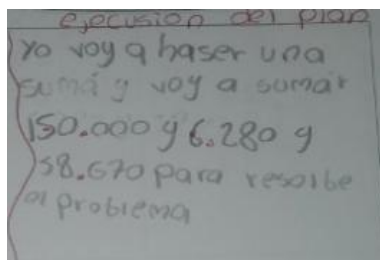 ejecusion del plan
Yo voy a haser una
suma y voy a sumar
150.000 y 6.280 y
58.670 para resolbe
el problema